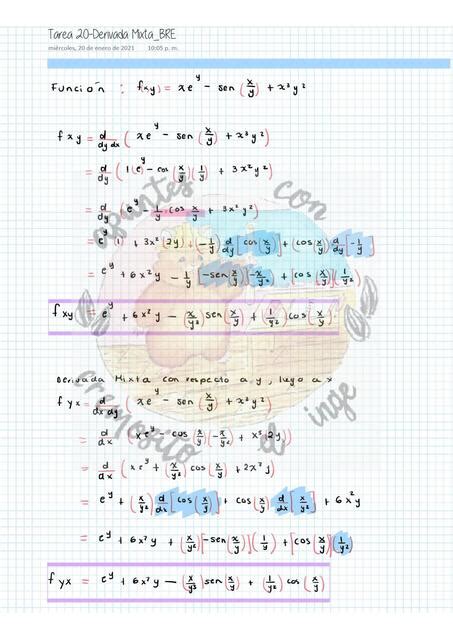 Tarea 20-Derivada Mixta_BRE
miércoles, 20 de enero de 2021 10:05 p. m.
Función : f(xy) = xe^y - sen(x/y) + x³y²
fxy = d/dy dx (xe^y - sen(x/y) + x³y²)
= d/dy (1(e^y) - cos(x/y)(1/y) + 3x²y²)
= d/dy (e^y - 1/y · cos x/y + 3x²y²)
= e^y (1) + 3x²(2y) + (-1/y) d/dy [cos(x/y)] + (cos(x/y)) d/dy [-1/y]
= e^y + 6x²y - 1/y [-sen(x/y)](-x/y²) + [cos(x/y)](1/y²)
fxy = e^y + 6x²y - (x/y³) sen(x/y) + (1/y²) cos(x/y)
Derivada Mixta con respecto a y, luego a x
fyx = d/dx dy (xe^y - sen(x/y) + x³y²)
= d/dx (xe^y - cos(x/y)(-x/y²) + x³(2y))
= d/dx (xe^y + (x/y²) cos(x/y) + 2x³y)
= e^y + (x/y²) d/dx [cos(x/y)] + cos(x/y) d/dx [x/y²] + 6x²y
= e^y + 6x²y + (x/y²)[-sen(x/y)](1/y) + [cos(x/y)](1/y²)
fyx = e^y + 6x²y - (x/y³) sen(x/y) + (1/y²) cos(x/y)
apuntes con
cremosito el inge